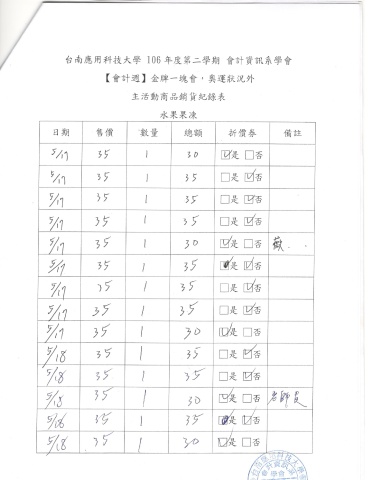 台南應用科技大學 106 年度第二學期 會計資訊系學會
【會計週】金牌一塊會，奧運狀況外
主活動商品銷貨紀錄表
水果果凍
日期 售價 數量 總額 折價券 備註
5/17 35 1 30 ☑是 □否
5/17 35 1 35 □是 ☑否
5/17 35 1 35 □是 ☑否
5/17 35 1 35 □是 ☑否
5/17 35 1 30 ☑是 □否
5/17 35 1 35 是 ☑否
5/17 35 1 35 □是 ☑否
5/17 35 1 35 □是 ☑否
5/17 35 1 30 ☑是 □否
5/18 35 1 35 □是 ☑否
5/18 35 1 35 □是 ☑否
5/18 35 1 30 ☑是 □否 老師
5/18 35 1 35 是 ☑否
5/18 35 1 30 ☑是 □否